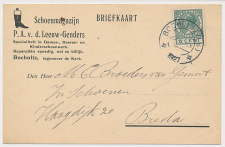 Schoenmagazijn
BRIEFKAART
P. A. v. d. Leeuw-Genders
Specialiteit in Dames-, Heeren- en
Kinderschoenwerk
Reparatiën spoedig, net en billijk.
Bocholtz, tegenover de Kerk.
Den Heer
in Schoenen
Haagdijk
Breda